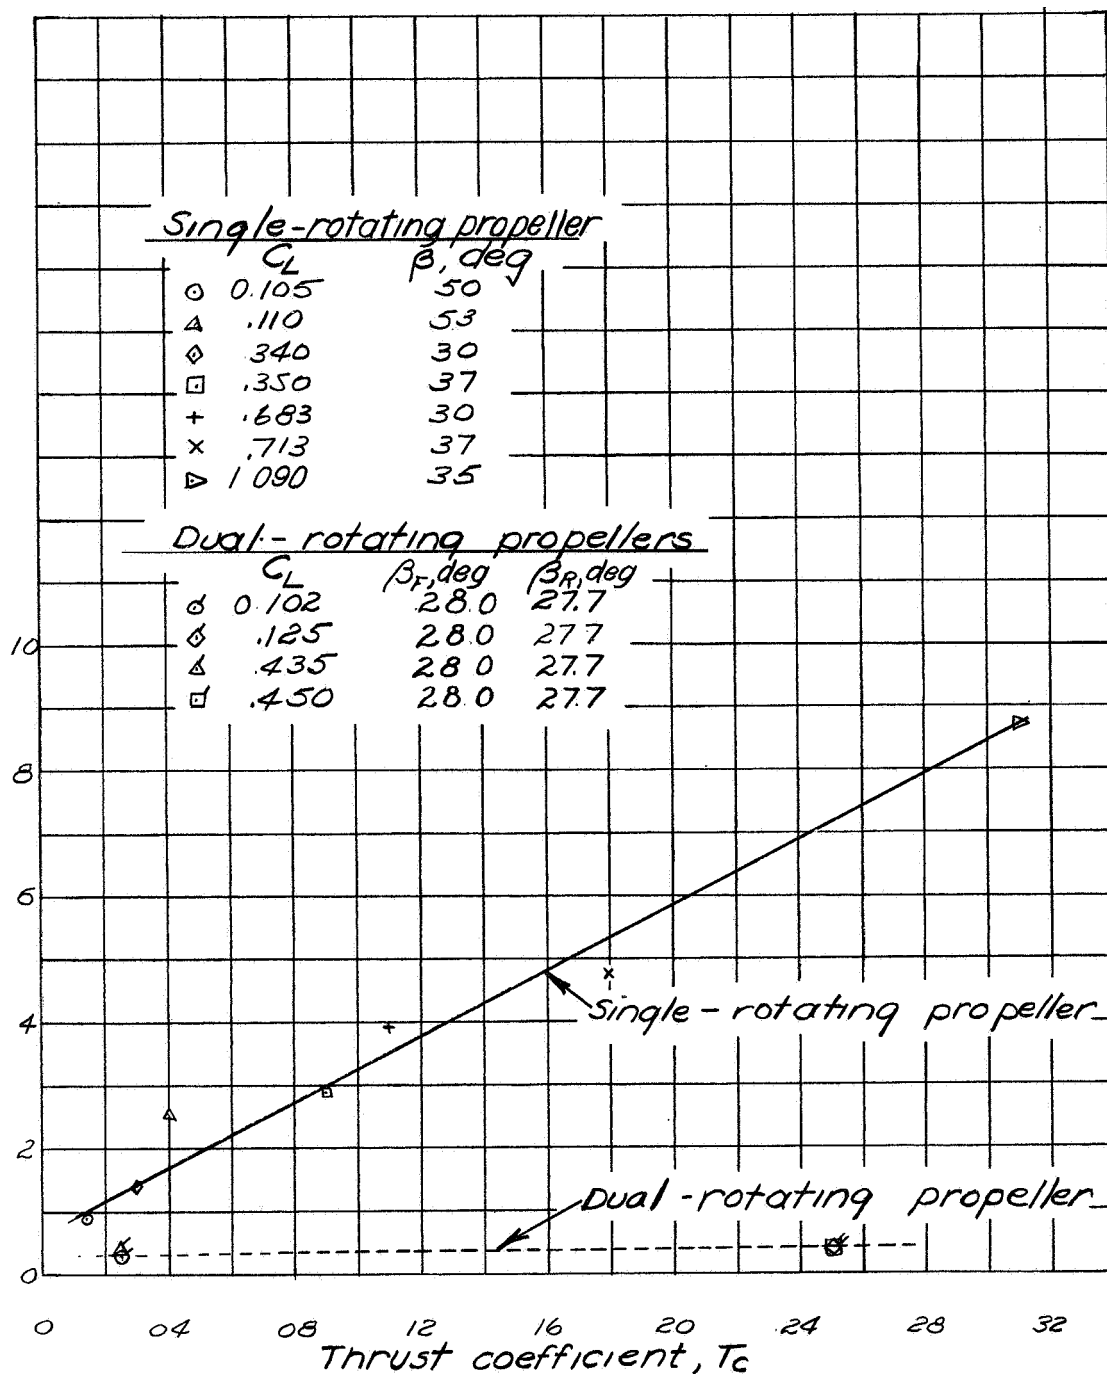 Single-rotating propeller
C_L β, deg
0.105 50
.110 53
.340 30
.350 37
.683 30
.713 37
1 090 35
Dual-rotating propellers
C_L β_F, deg β_R, deg
0.102 28.0 27.7
.125 28.0 27 7
.435 28 0 27.7
.450 28.0 27.7
10
8
6
4
Single-rotating propeller
2
Dual-rotating propeller
0
0 04 08 12 16 20 .24 28 32
Thrust coefficient, T_c